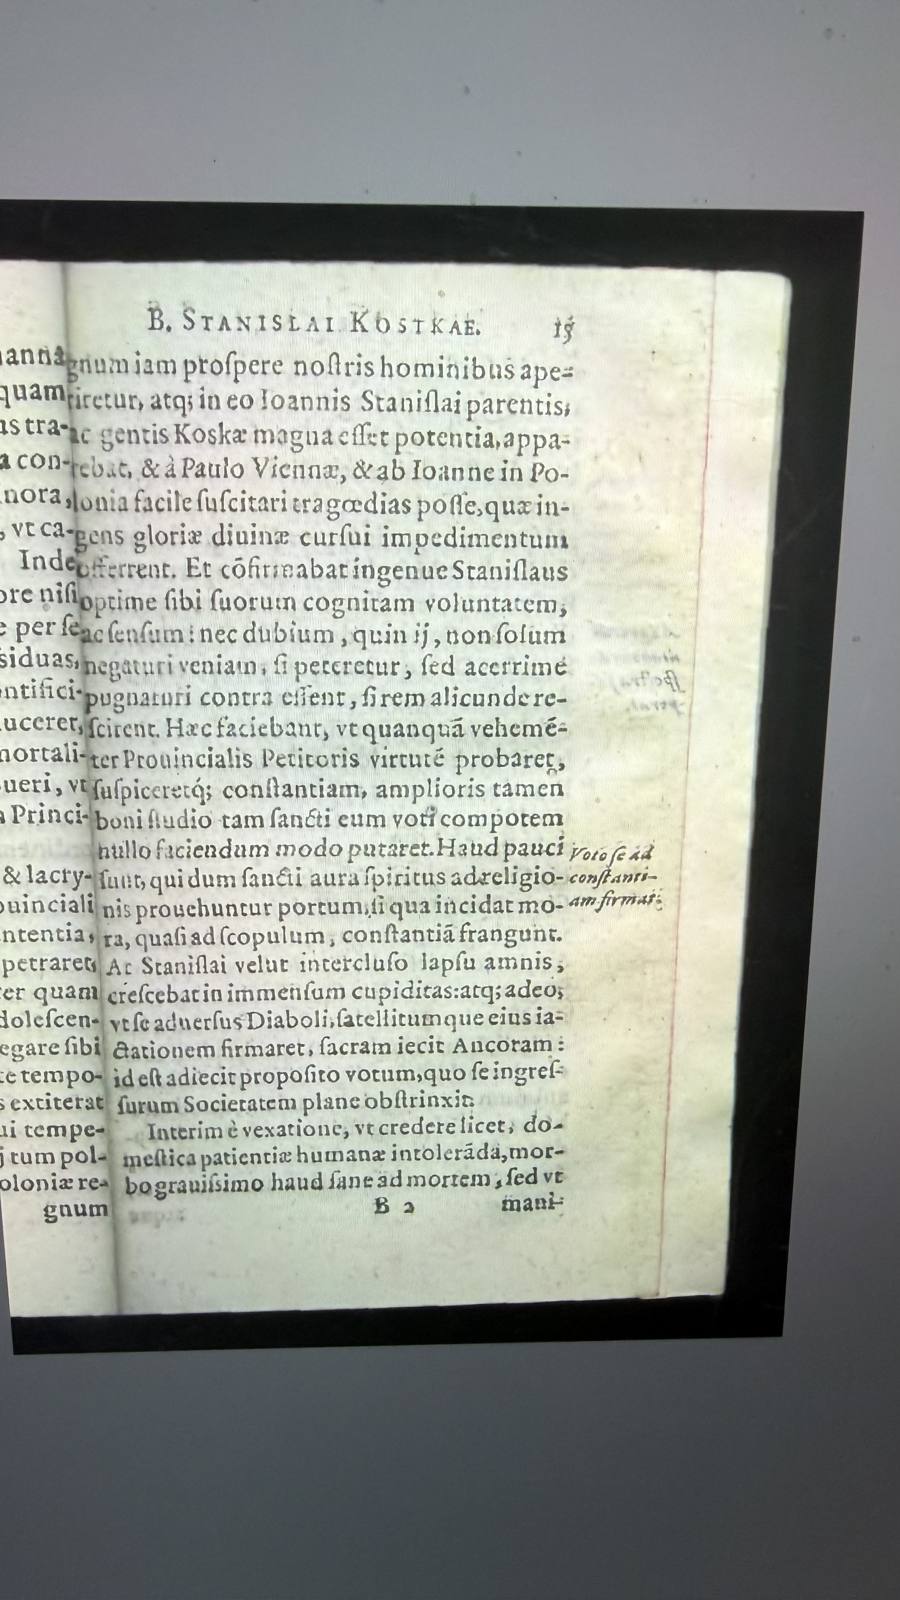 B. STANISLAI KOSTKAE.
gnum iam proſpere noſtris hominibus ape=
riretur, atq; in eo Ioannis Staniſlai parentis,
ac gentis Koskæ magna eſſet potentia, appa-
rebat, & à Paulo Viennæ, & ab Ioanne in Po-
lonia facile ſuſcitari tragœdias poſſe, quæ in-
gens gloriæ diuinæ curſui impedimentum
offerrent. Et cõfirmabat ingenue Staniſlaus
optime ſibi ſuorum cognitam voluntatem,
ac ſenſum: nec dubium, quin ij, non ſolum
negaturi veniam, ſi peteretur, ſed acerrime
pugnaturi contra eſſent, ſi rem alicunde re-
ſcirent. Hæc faciebant, vt quanquã vehemẽ=
ter Prouincialis Petitoris virtutẽ probaret,
ſuſpiceretq́; conſtantiam, amplioris tamen
boni ſtudio tam ſancti eum voti compotem
nullo faciendum modo putaret. Haud pauci
ſunt, qui dum ſancti aura ſpiritus ad religio-
nis prouehuntur portum, ſi qua incidat mo-
ra, quaſi ad ſcopulum, conſtantiã frangunt.
At Staniſlai velut intercluſo lapſu amnis,
creſcebat in immenſum cupiditas: atq; adeo,
vt ſe aduerſus Diaboli, ſatellitumque eius ia-
ctationem firmaret, ſacram iecit Ancoram:
id eſt adiecit propoſito votum, quo ſe ingreſ-
ſurum Societatem plane obſtrinxit.
Interim è vexatione, vt credere licet, do-
meſtica patientiæ humanæ intolerãda, mor-
bo grauiſsimo haud ſane ad mortem, ſed vt
B 2 mani-
Voto ſe ad
conſtanti-
am firmat.
quam
us tra-
a con-
nora,
, vt ca-
Inde
ore niſi
e per ſe
ſiduas,
ntifici-
uceret,
mortali-
ueri, vt
Princi-
& lacry-
ouinciali
ntentia,
petraret,
er quam
doleſcen-
egare ſibi
te tempo-
s extiterat
ui tempe-
j tum pol-
oloniæ re-
gnum